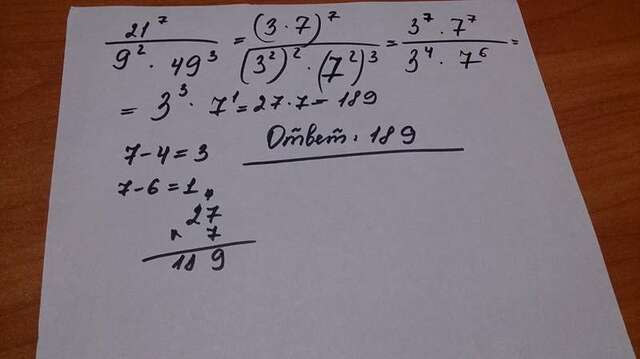 21⁷ / (9² · 49³) = (3 · 7)⁷ / ((3²)² · (7²)³) = (3⁷ · 7⁷) / (3⁴ · 7⁶) =
= 3³ · 7¹ = 27 · 7 = 189
7 - 4 = 3
Ответ: 189
7 - 6 = 1
27
× 7
189